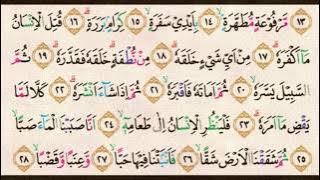 ١٣ مَرْفُوعَةٍ مُطَهَّرَةٍ ١٤ بِأَيْدِي سَفَرَةٍ ١٥ كِرَامٍ بَرَرَةٍ ١٦ قُتِلَ الْاِنْسَانُ
مَا اَكْفَرَهُ ١٧ مِنْ اَيِّ شَيْءٍ خَلَقَهُ ١٨ مِنْ نُطْفَةٍ خَلَقَهُ فَقَدَّرَهُ ١٩ ثُمَّ
السَّبِيلَ يَسَّرَهُ ٢٠ ثُمَّ اَمَاتَهُ فَاَقْبَرَهُ ٢١ ثُمَّ اِذَا شَاءَ اَنْشَرَهُ ٢٢ كَلَّا لَمَّا
يَقْضِ مَا اَمَرَهُ ٢٣ فَلْيَنْظُرِ الْاِنْسَانُ اِلٰى طَعَامِهِ ٢٤ اَنَّا صَبَبْنَا الْمَاءَ صَبًّا
٢٥ ثُمَّ شَقَقْنَا الْاَرْضَ شَقًّا ٢٦ فَاَنْبَتْنَا فِيهَا حَبًّا ٢٧ وَعِنَبًا وَقَضْبًا ٢٨